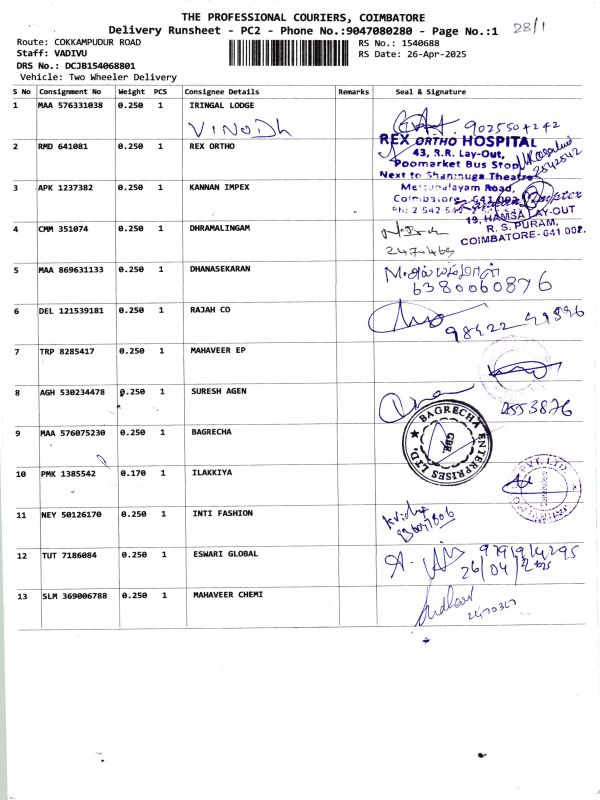 THE PROFESSIONAL COURIERS, COIMBATORE
Delivery Runsheet - PC2 - Phone No.:9047080280 - Page No.:1 28/1
Route: COKKAMPUDUR ROAD RS No.: 1540688
Staff: VADIVU RS Date: 26-Apr-2025
DRS No.: DCJB154068801
Vehicle: Two Wheeler Delivery
S No Consignment No Weight PCS Consignee Details Remarks Seal & Signature
1 MAA 576331038 0.250 1 IRINGAL LODGE
VINODh
2 RMD 641081 0.250 1 REX ORTHO
REX ORTHO HOSPITAL
43, R.R. Lay-Out,
Poomarket Bus Stop
Next to Shanmuga Theatre
Mettupalayam Road,
Coimbatore - 641 002
2542542
3 APK 1237382 0.250 1 KANNAN IMPEX
19, HAMSA LAY-OUT
R. S. PURAM,
COIMBATORE - 641 002.
4 CMM 351074 0.250 1 DHRAMALINGAM
5 MAA 869631133 0.250 1 DHANASEKARAN
6380060876
6 DEL 121539181 0.250 1 RAJAH CO
7 TRP 8285417 0.250 1 MAHAVEER EP
8 AGH 530234478 0.250 1 SURESH AGEN
2553876
9 MAA 576075230 0.250 1 BAGRECHA
BAGRECHA ENTERPRISES LTD.
CBE.
10 PMK 1385542 0.170 1 ILAKKIYA
PVT. LTD.
11 NEY 50126170 0.250 1 INTI FASHION
12 TUT 7186084 0.250 1 ESWARI GLOBAL
26/04/2025
13 SLM 369006788 0.250 1 MAHAVEER CHEMI